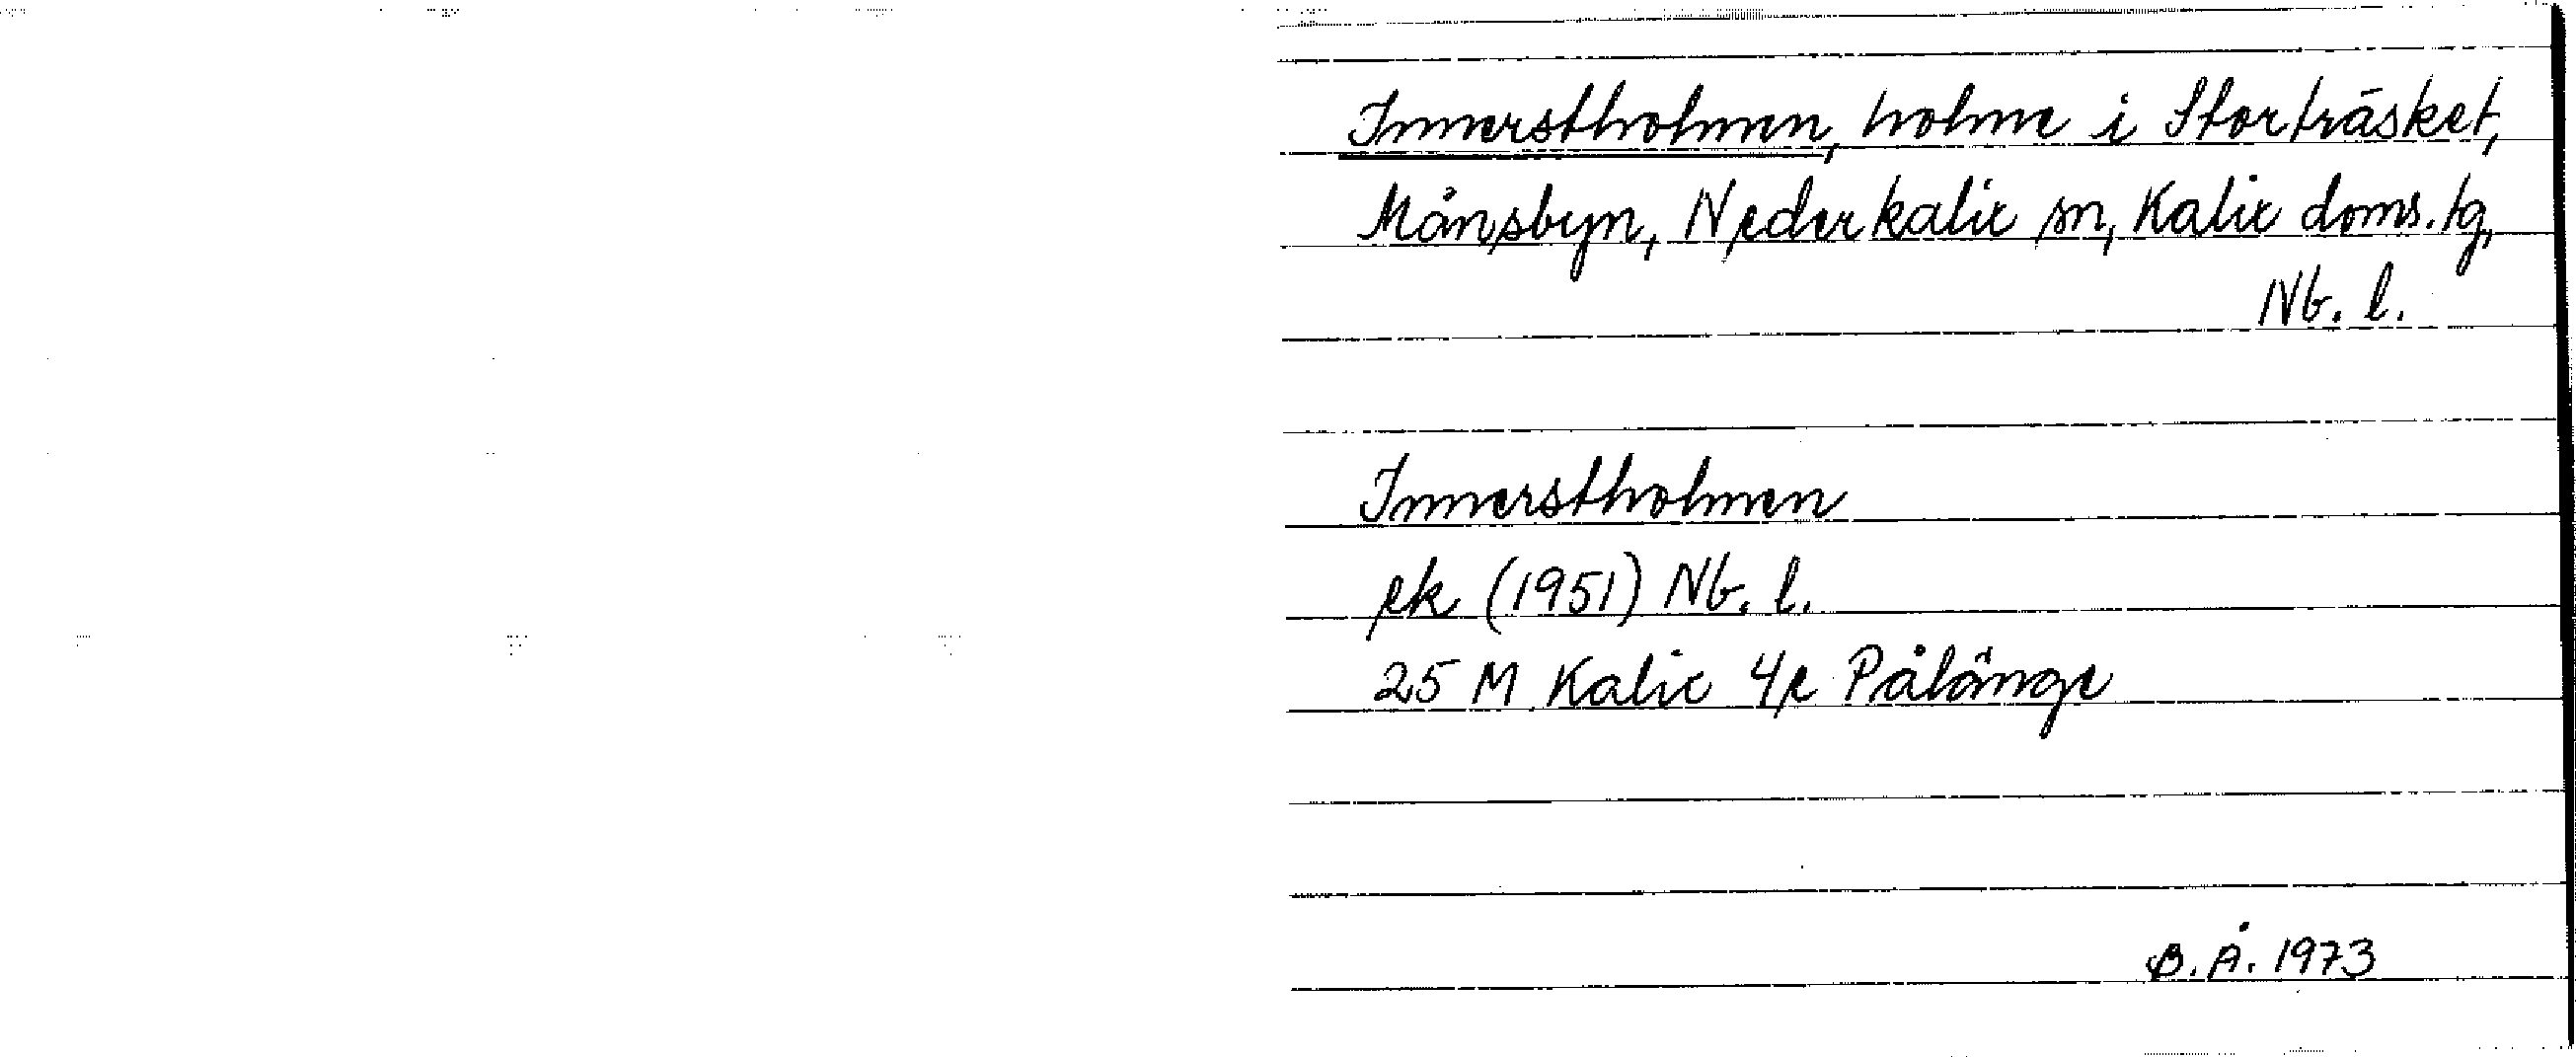 Innerstholmen, holme i Storträsket,
Månsbyn, Nederkalix sn, Kalix doms. tg,
Nb. l.
Innerstholmen
ek (1951) Nb. l.
25 M Kalix 4e Pålänge
B. Å. 1973